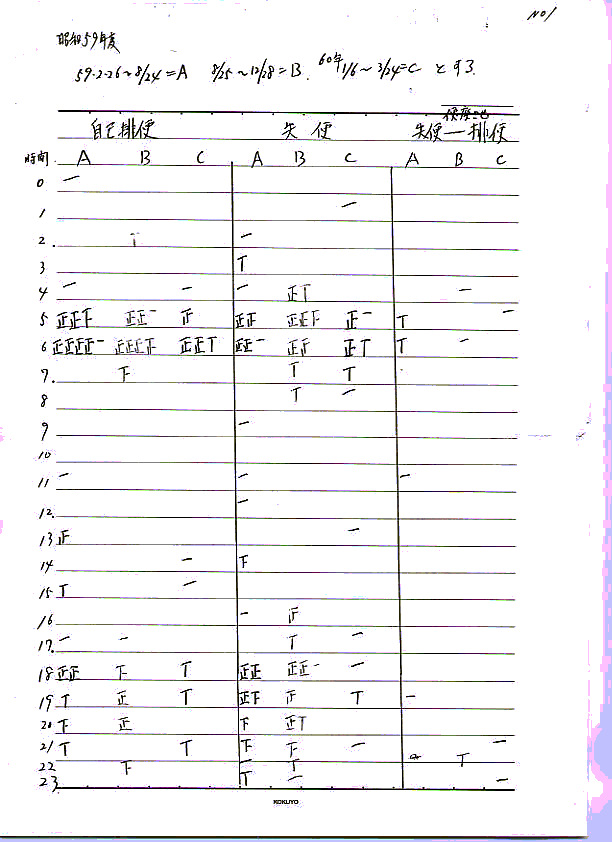 NO1
昭和59年度
59・2・26〜8/24=A 8/25〜12/28=B. 60年1/6〜3/24=C とする.
自己排便 失便 失便―排便
時間 A B C A B C A B C
0 一
1 一
2. T 一
3 T
4 一 一 一 正T 一
5 正正下 正正一 正 正正 正正下 正一 T 一
6 正正正正一 正正正下 正正T 正正一 正正 正T T 一
7. 下 T T
8 T 一
9 一
10
11 一 一 一
12. 一
13 正 一
14 一 下
15 T 一
16 一 正
17. 一 一 T 一
18 正正 下 T 正正 正正一 一
19 T 正 T 正下 正 T 一
20 下 正 下 正T
21 T T 下 下 一 一
22 下 一 T T
23 T 一 一
KOKUYO